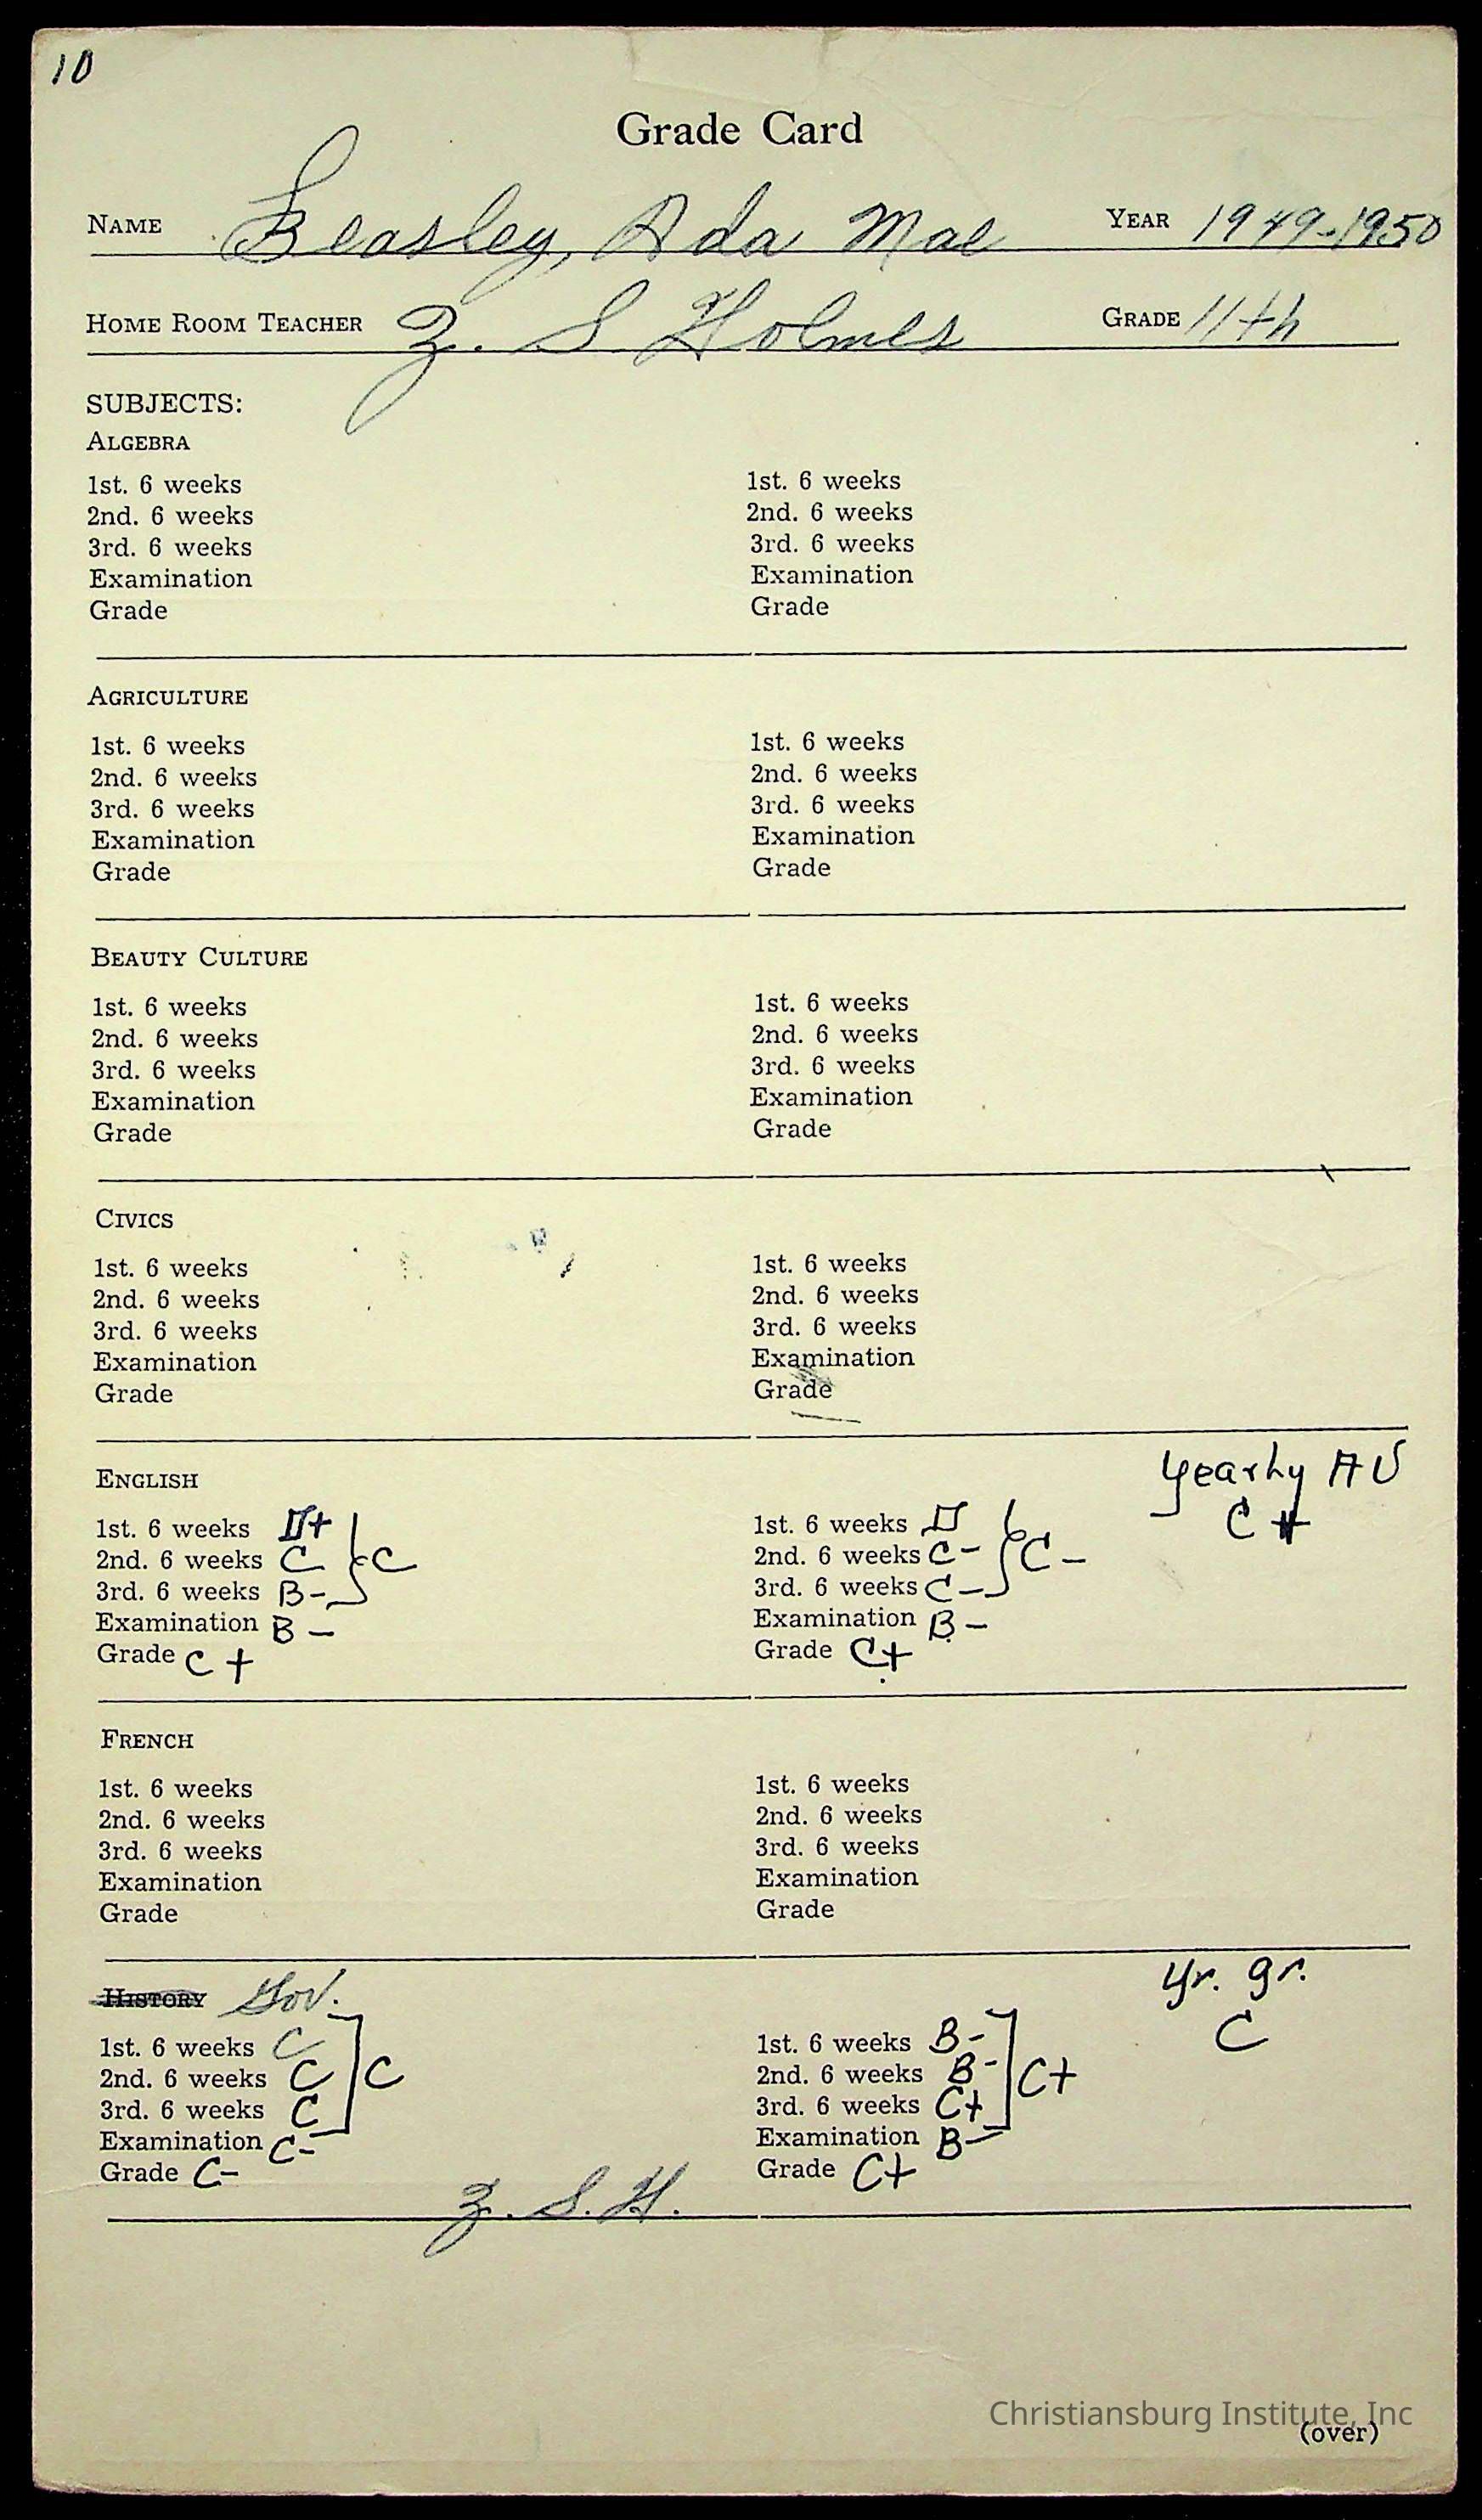 10
Grade Card
NAME Beasley, Ada Mae YEAR 1949-1950
HOME ROOM TEACHER Z. S Holmes GRADE 11th
SUBJECTS:
ALGEBRA
1st. 6 weeks 1st. 6 weeks
2nd. 6 weeks 2nd. 6 weeks
3rd. 6 weeks 3rd. 6 weeks
Examination Examination
Grade Grade
AGRICULTURE
1st. 6 weeks 1st. 6 weeks
2nd. 6 weeks 2nd. 6 weeks
3rd. 6 weeks 3rd. 6 weeks
Examination Examination
Grade Grade
BEAUTY CULTURE
1st. 6 weeks 1st. 6 weeks
2nd. 6 weeks 2nd. 6 weeks
3rd. 6 weeks 3rd. 6 weeks
Examination Examination
Grade Grade
CIVICS
1st. 6 weeks 1st. 6 weeks
2nd. 6 weeks 2nd. 6 weeks
3rd. 6 weeks 3rd. 6 weeks
Examination Examination
Grade Grade
ENGLISH yearly AV
1st. 6 weeks D+ 1st. 6 weeks D C+
2nd. 6 weeks C C 2nd. 6 weeks C- C-
3rd. 6 weeks B- 3rd. 6 weeks C-
Examination B- Examination B-
Grade C+ Grade C+
FRENCH
1st. 6 weeks 1st. 6 weeks
2nd. 6 weeks 2nd. 6 weeks
3rd. 6 weeks 3rd. 6 weeks
Examination Examination
Grade Grade
HISTORY Gov. yr. gr.
1st. 6 weeks C 1st. 6 weeks B- C
2nd. 6 weeks C C 2nd. 6 weeks B- C+
3rd. 6 weeks C 3rd. 6 weeks C+
Examination C- Examination B-
Grade C- Grade C+
Z. S. H.
Christiansburg Institute, Inc
(over)